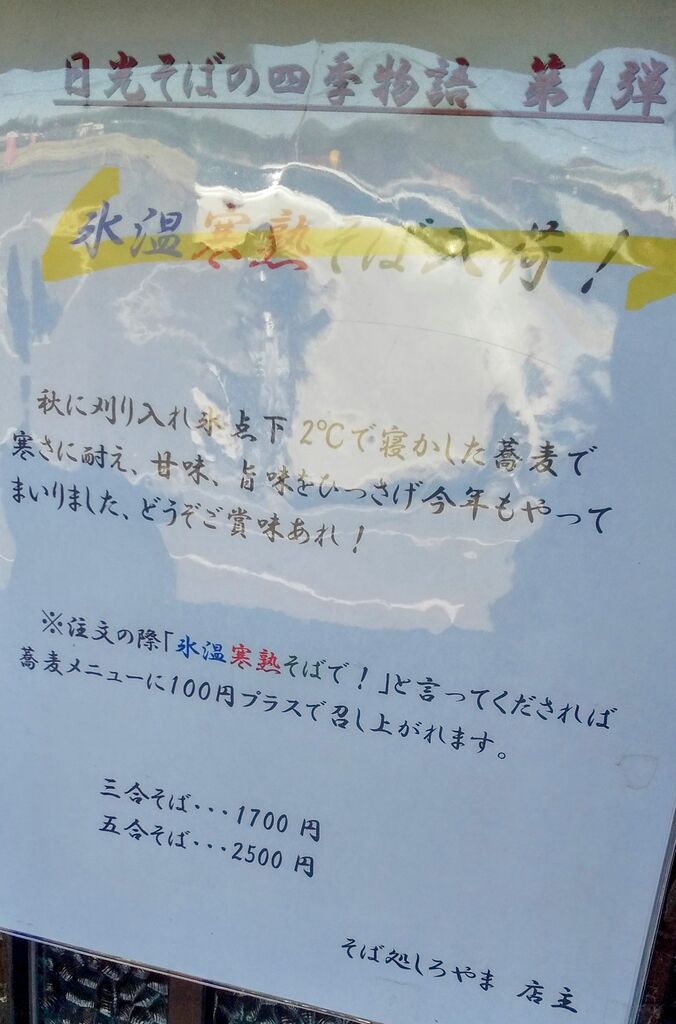 日光そばの四季物語 第1弾
氷温寒熟そば入荷!
秋に刈り入れ氷点下2℃で寝かした蕎麦で
寒さに耐え、甘味、旨味をひっさげ今年もやって
まいりました、どうぞご賞味あれ!
※注文の際「氷温寒熟そばで!」と言ってくだされば
蕎麦メニューに100円プラスで召し上がれます。
三合そば・・・1700 円
五合そば・・・2500 円
そば処しろやま 店主